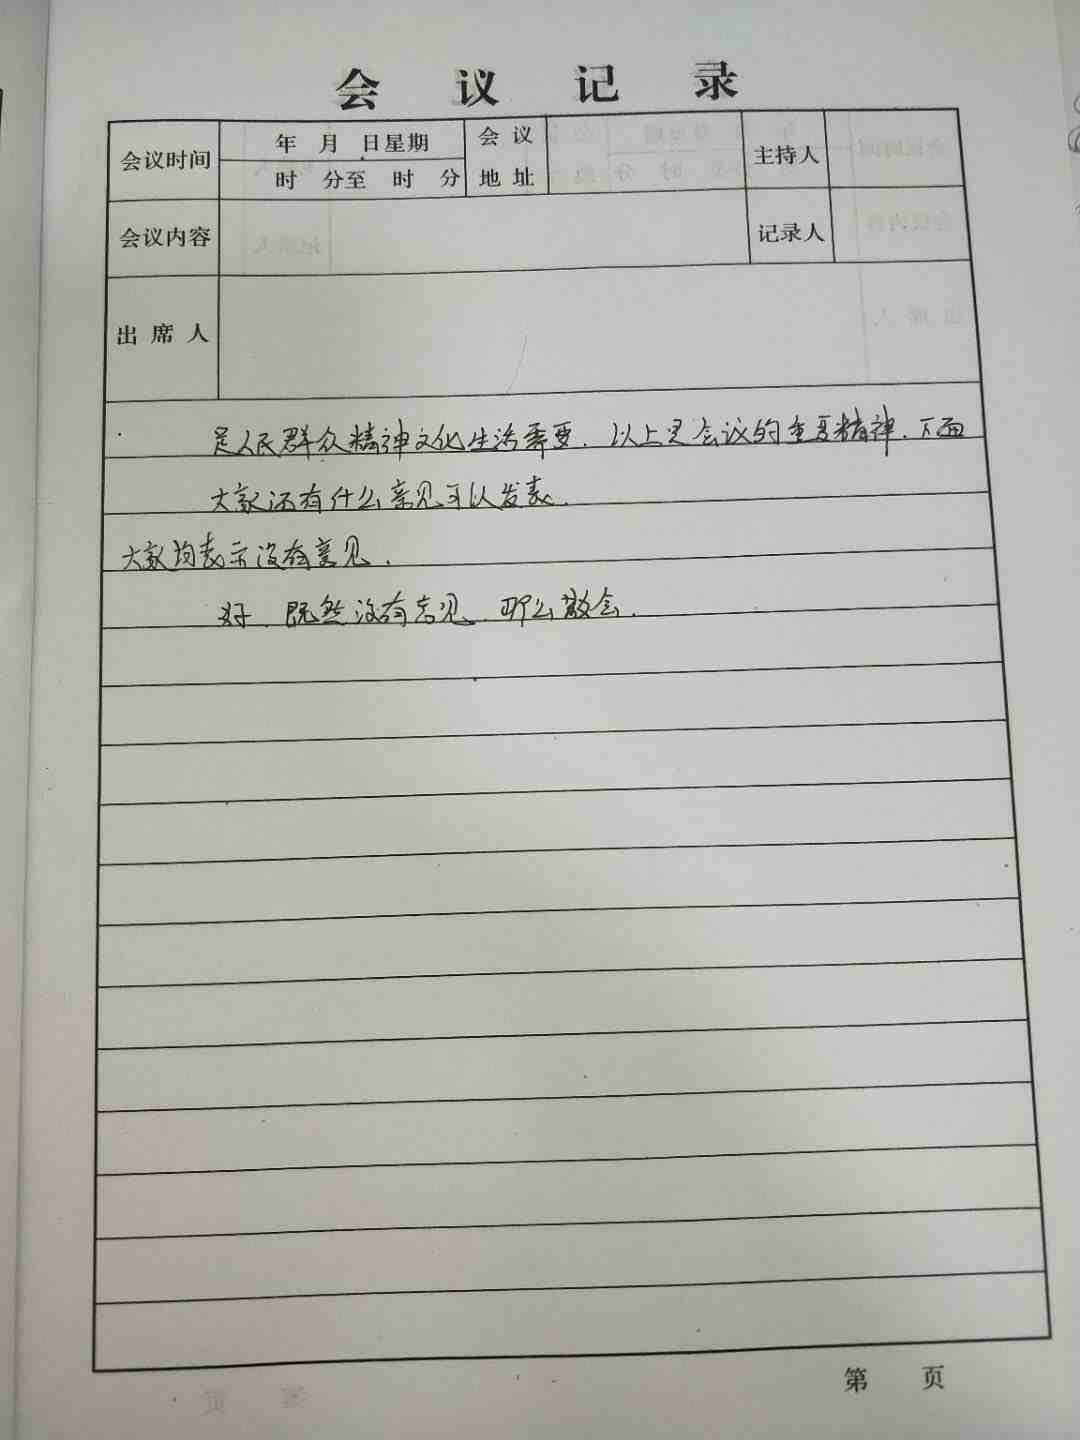 会议记录
会议时间 年 月 日星期 会议 主持人
时 分至 时 分 地址
会议内容 记录人
出席人
是人民群众精神文化生活需要.以上是会议的重要精神.下面
大家还有什么意见可以发表.
大家均表示没有意见.
好.既然没有意见.那么散会.
第 页